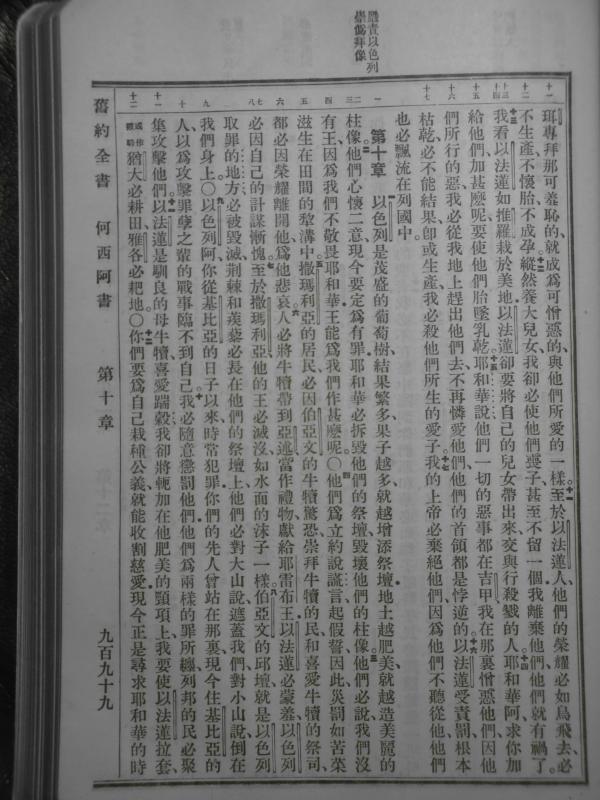 譴責以色列
崇僞拜像
十一
十二
十三
十四
十五
十六
十七
珥專拜那可羞恥的就成爲可憎惡的與他們所愛的一樣至於以法蓮人他們的榮耀必如鳥飛去必
不生產不懷胎不成孕縱然養大兒女我卻必使他們喪子甚至不留一個我離棄他們他們就有禍了
我看以法蓮如推羅栽於美地以法蓮卻要將自己的兒女帶出來交與行殺戮的人耶和華阿求你加
給他們加甚麽呢要使他們胎墜乳乾耶和華說他們一切的惡事都在吉甲我在那裏憎惡他們因他
們所行的惡我必從我地上趕出他們去不再憐愛他們他們的首領都是悖逆的以法蓮受責罰根本
枯乾必不能結果卽或生產我必殺他們所生的愛子我的上帝必棄絕他們因爲他們不聽從他他們
也必飄流在列國中
一
二
三
四
五
六
七
八
九
十
十一
十二
第十章 以色列是茂盛的葡萄樹結果繁多果子越多就越增添祭壇地土越肥美就越造美麗的
柱像他們心懷二意現今要定爲有罪耶和華必拆毀他們的祭壇毀壞他們的柱像他們必說我們沒
有王因爲我們不敬畏耶和華王能爲我們作甚麽呢〇他們爲立約說謊言起假誓因此災罰如苦菜
滋生在田間的犂溝中撒瑪利亞的居民必因伯亞文的牛犢驚恐崇拜牛犢的民和喜愛牛犢的祭司
都必因榮耀離開他爲他悲哀人必將牛犢帶到亞述當作禮物獻給耶雷布王以法蓮必蒙羞以色列
必因自己的計謀慚愧至於撒瑪利亞他的王必滅沒如水面的沫子一樣伯亞文的邱壇就是以色列
取罪的地方必被毀滅荆棘和蒺藜必長在他們的祭壇上他們必對大山說遮蓋我們對小山說倒在
我們身上〇以色列阿你從基比亞的日子以來時常犯罪你們的先人曾站在那裏現今住基比亞的
人以爲攻擊罪孽之輩的戰事臨不到自己我必隨意懲罰他們他們爲兩樣的罪所纏列邦的民必聚
集攻擊他們以法蓮是馴良的母牛犢喜愛踹穀我卻將軛加在他肥美的頸項上我要使以法蓮拉套
猶大必耕田雅各必耙地〇你們要爲自己栽種公義就能收割慈愛現今正是尋求耶和華的時
舊約全書 何西阿書 第十章 九百九十九